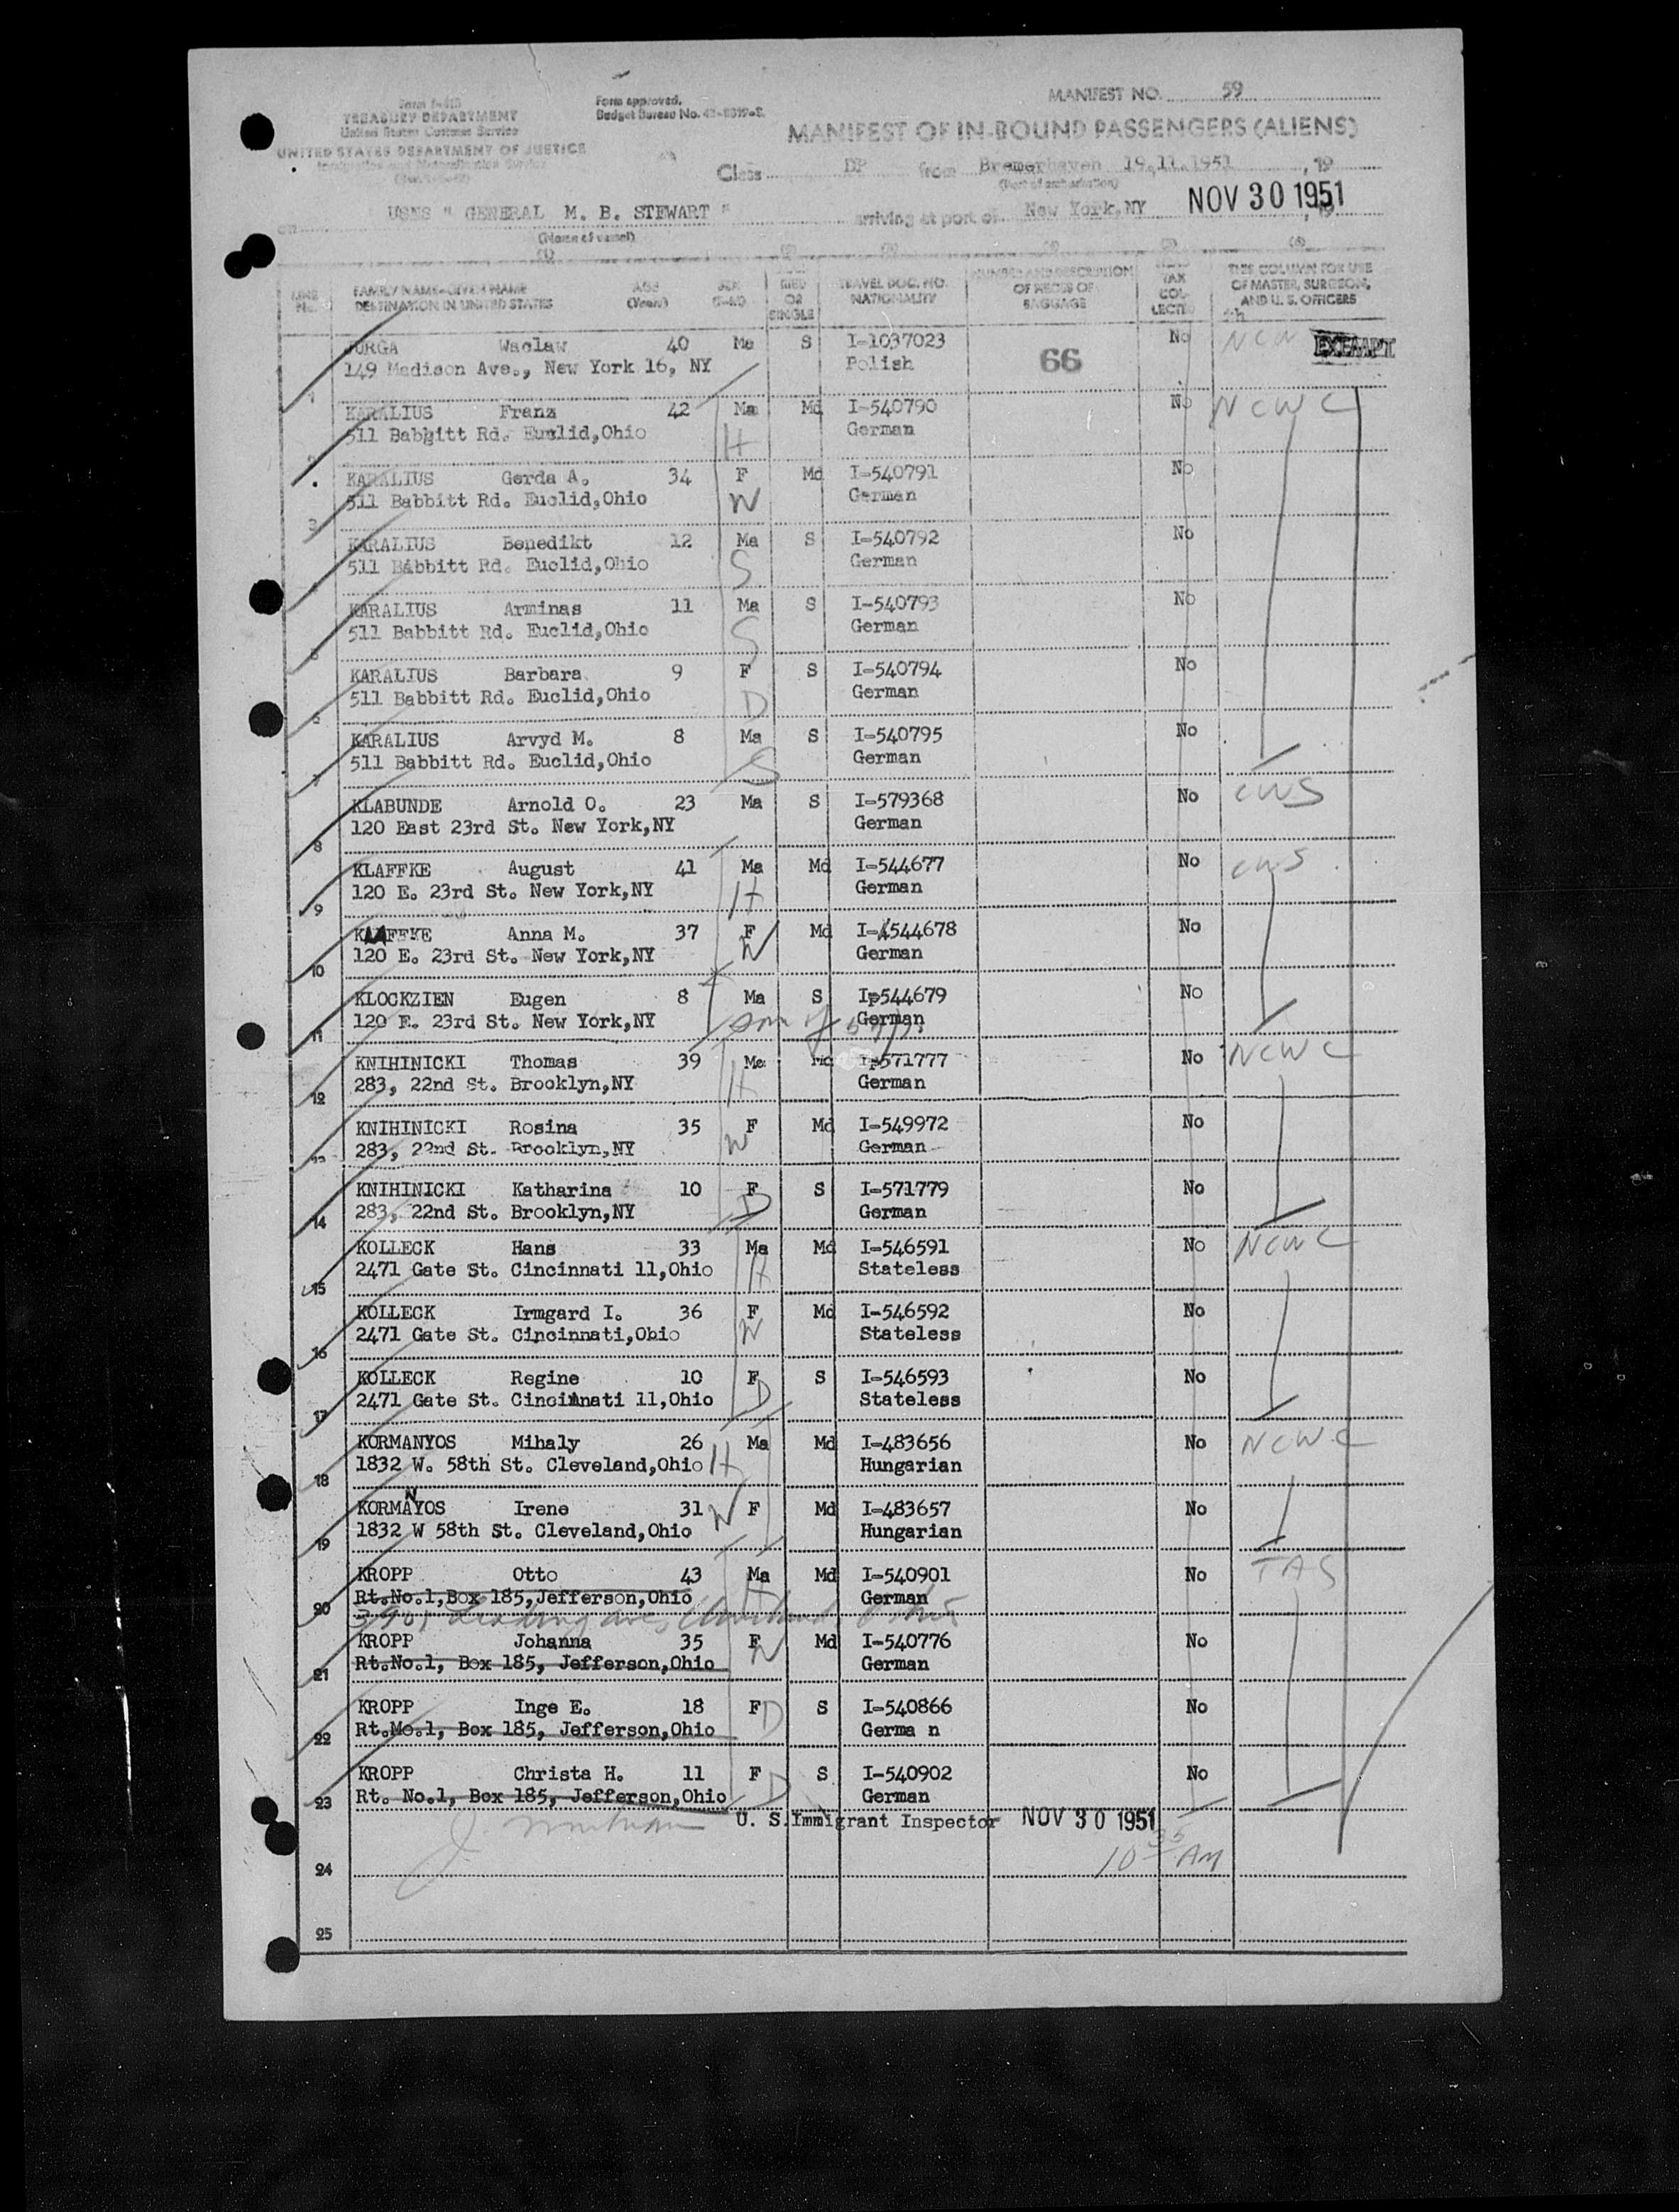 MANIFEST NO. 59
Form I-415
TREASURY DEPARTMENT
United States Customs Service
UNITED STATES DEPARTMENT OF JUSTICE
Immigration and Naturalization Service
Form approved.
Budget Bureau No.
MANIFEST OF IN-BOUND PASSENGERS (ALIENS)
Class DP from Bremerhaven 19.11.1951, 19
(Port of embarkation)
on USNS " GENERAL M. B. STEWART " arriving at port of New York, NY NOV 30 1951, 19
(Name of vessel)
(1) (2) (3) (4) (5) (6)
LINE No. FAMILY NAME—GIVEN NAME DESTINATION IN UNITED STATES AGE (Years) SEX MRD OR SINGLE TRAVEL DOC. NO. NATIONALITY NUMBER AND DESCRIPTION OF PIECES OF BAGGAGE TAX COLLECTED THIS COLUMN FOR USE OF MASTER, SURGEON, AND U. S. OFFICERS
JURGA Waclaw 40 Ma S I-1037023 No NCW EXEMPT
149 Madison Ave., New York 16, NY Polish 66
1
KARALIUS Franz 42 Ma Md I-540790 No NCWC
511 Babbitt Rd. Euclid,Ohio H German
2
KARALIUS Gerda A. 34 F Md I-540791 No
511 Babbitt Rd. Euclid,Ohio W German
3
KARALIUS Benedikt 12 Ma S I-540792 No
511 Babbitt Rd. Euclid,Ohio S German
4
KARALIUS Arminas 11 Ma S I-540793 No
511 Babbitt Rd. Euclid,Ohio S German
5
KARALIUS Barbara 9 F S I-540794 No
511 Babbitt Rd. Euclid,Ohio D German
6
KARALIUS Arvyd M. 8 Ma S I-540795 No
511 Babbitt Rd. Euclid,Ohio S German
7
KLABUNDE Arnold O. 23 Ma S I-579368 No CWS
120 East 23rd St. New York,NY German
8
KLAFFKE August 41 Ma Md I-544677 No CWS
120 E. 23rd St. New York,NY H German
9
KLAFFKE Anna M. 37 F Md I-544678 No
120 E. 23rd St. New York,NY W German
10
KLOCKZIEN Eugen 8 Ma S Ip544679 No
120 E. 23rd St. New York,NY son of German
11
KNIHINICKI Thomas 39 Ma Md Ip571777 No NCWC
283, 22nd St. Brooklyn,NY H German
12
KNIHINICKI Rosina 35 F Md I-549972 No
283, 22nd St. Brooklyn,NY W German
13
KNIHINICKI Katharina 10 F S I-571779 No
283, 22nd St. Brooklyn,NY D German
14
KOLLECK Hans 33 Ma Md I-546591 No NCWC
2471 Gate St. Cincinnati 11,Ohio H Stateless
15
KOLLECK Irmgard I. 36 F Md I-546592 No
2471 Gate St. Cincinnati,Ohio W Stateless
16
KOLLECK Regine 10 F S I-546593 No
2471 Gate St. Cincinnati 11,Ohio D Stateless
17
KORMANYOS Mihaly 26 Ma Md I-483656 No NCWC
1832 W. 58th St. Cleveland,Ohio H Hungarian
18
KORMANYOS Irene 31 W F Md I-483657 No
1832 W 58th St. Cleveland,Ohio Hungarian
19
KROPP Otto 43 Ma Md I-540901 No TAS
Rt.No.1,Box 185,Jefferson,Ohio H German
20
KROPP Johanna 35 F Md I-540776 No
Rt.No.1, Box 185, Jefferson,Ohio W German
21
KROPP Inge E. 18 F D S I-540866 No
Rt.Mo.1, Box 185, Jefferson,Ohio Germa n
22
KROPP Christa H. 11 F S I-540902 No
Rt. No.1, Box 185, Jefferson,Ohio D German
23
U. S. Immigrant Inspector NOV 30 1951
10 35 AM
24
25